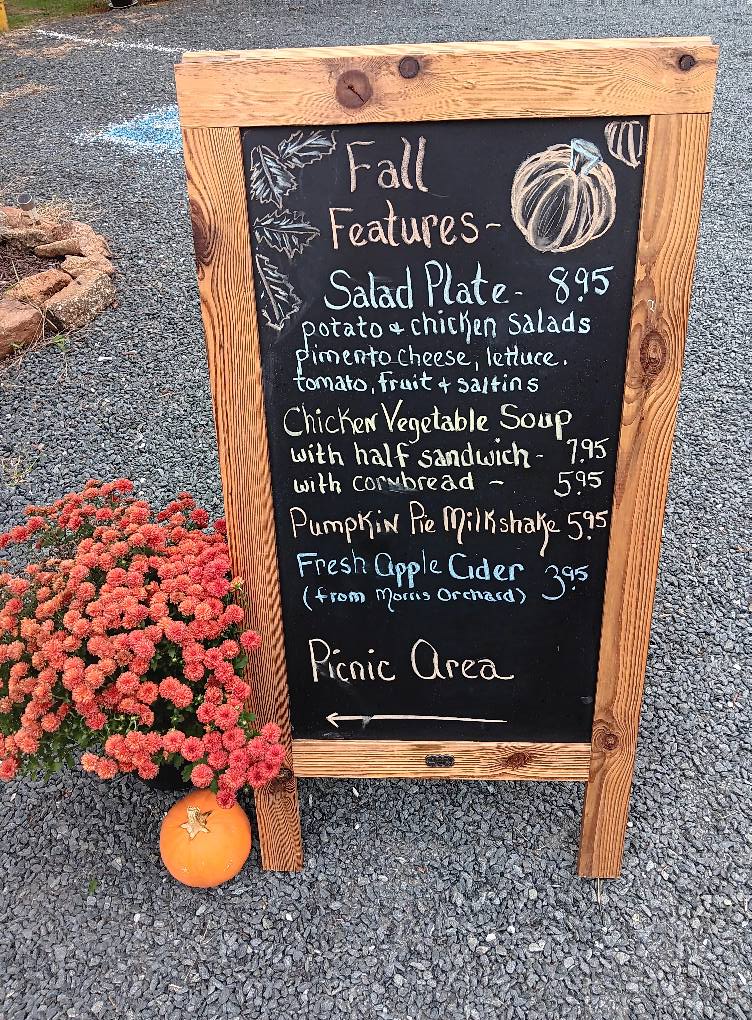 Fall
Features-
Salad Plate - 8.95
potato & chicken salads
pimento cheese, lettuce.
tomato, fruit & saltins
Chicken Vegetable Soup
with half sandwich - 7.95
with cornbread - 5.95
Pumpkin Pie Milkshake 5.95
Fresh Apple Cider 3.95
(from Morris Orchard)
Picnic Area